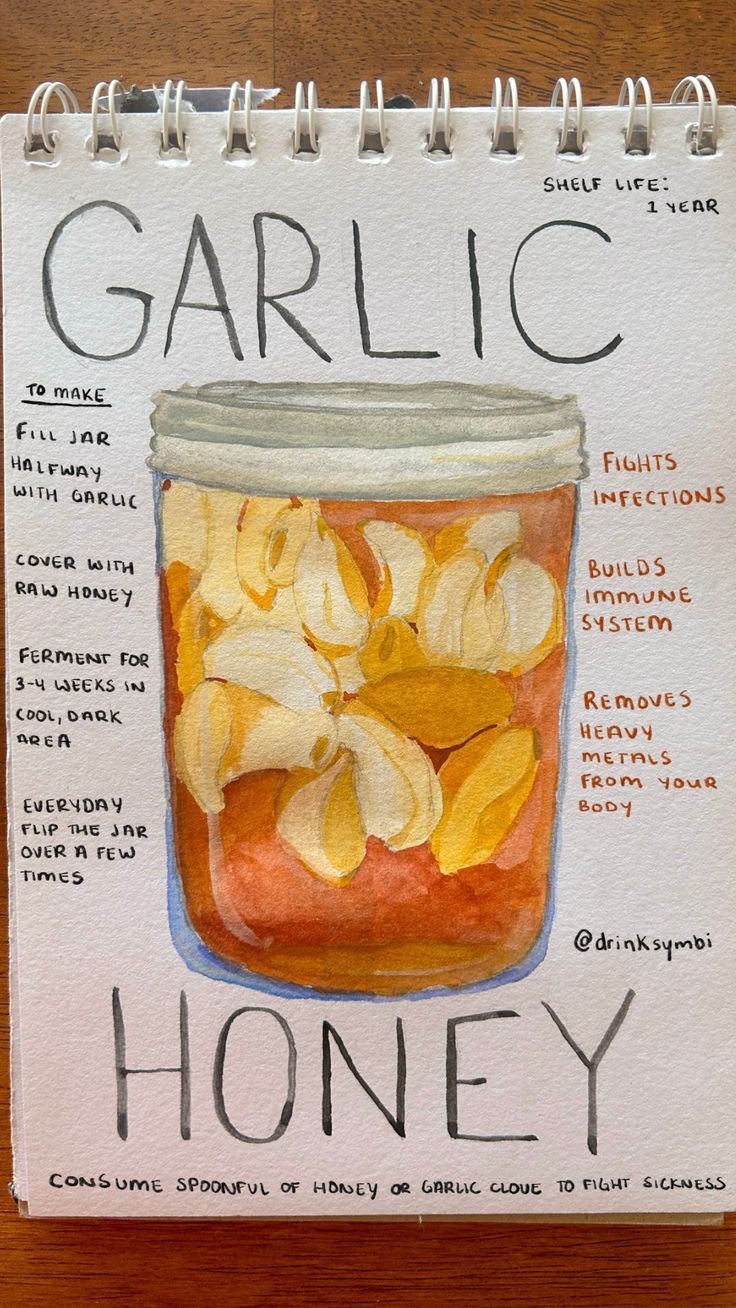 SHELF LIFE:
1 YEAR
GARLIC
TO MAKE
FILL JAR
HALFWAY
WITH GARLIC
COVER WITH
RAW HONEY
FERMENT FOR
3-4 WEEKS IN
COOL, DARK
AREA
EVERYDAY
FLIP THE JAR
OVER A FEW
TIMES
FIGHTS
INFECTIONS
BUILDS
IMMUNE
SYSTEM
REMOVES
HEAVY
METALS
FROM YOUR
BODY
@drinksymbi
HONEY
CONSUME SPOONFUL OF HONEY OR GARLIC CLOVE TO FIGHT SICKNESS